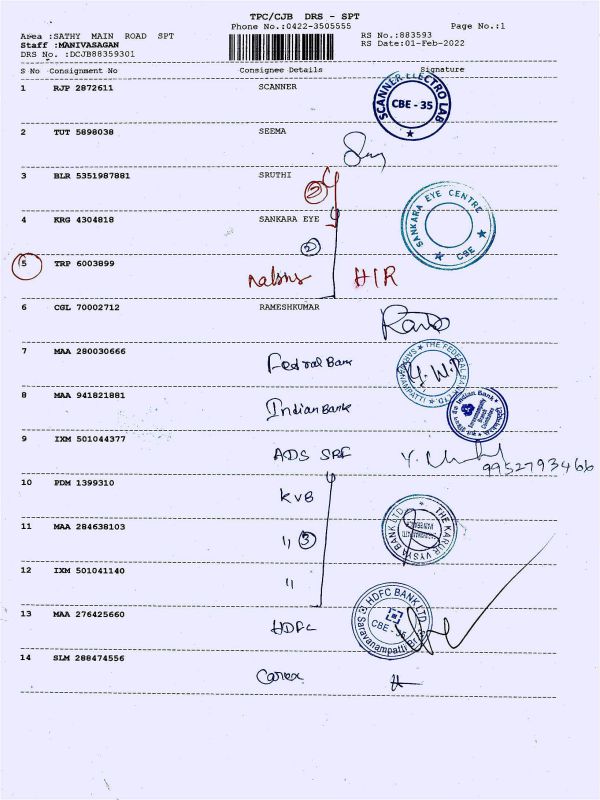 TPC/CJB DRS - SPT
Phone No.:0422-3505555 Page No.:1
Area :SATHY MAIN ROAD SPT RS No.:883593
Staff :MANIVASAGAN RS Date:01-Feb-2022
DRS No. :DCJB88359301
S No Consignment No Consignee Details Signature
1 RJP 2872611 SCANNER
SCANNER ELECTRO LAB
CBE - 35
2 TUT 5898038 SEEMA
3 BLR 5351987881 SRUTHI
2
4 KRG 4304818 SANKARA EYE
2
SANKARA EYE CENTRE
CBE
5 TRP 6003899
H/R
6 CGL 70002712 RAMESHKUMAR
7 MAA 280030666
Federal Bank
THE FEDERAL BANK LTD
8 MAA 941821881
Indian Bank
Indian Bank
9 IXM 501044377
ADS SRF
9952793466
10 PDM 1399310
KVB
11 MAA 284638103
" 3
THE KARUR VYSYA BANK LTD
12 IXM 501041140
"
13 MAA 276425660
HDFC
HDFC BANK LTD
CBE - 35
Saravanampatti
14 SLM 288474556
Carex